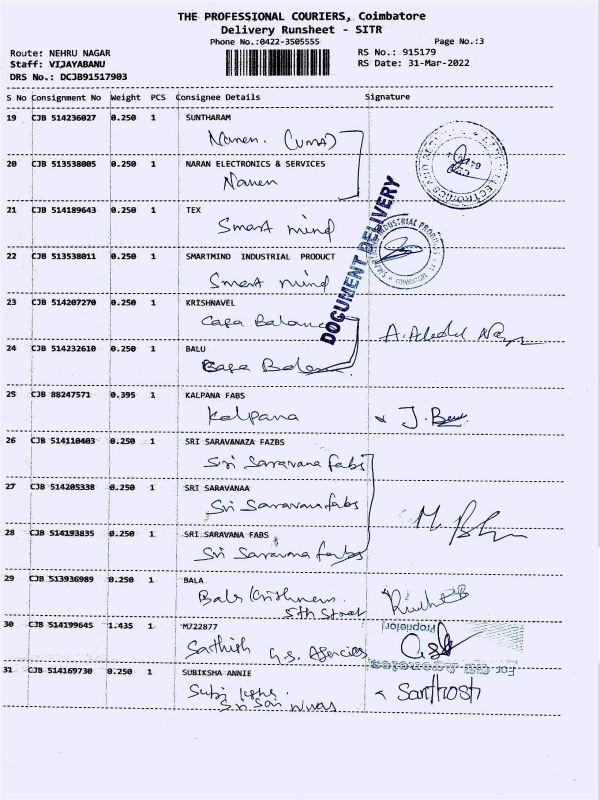 THE PROFESSIONAL COURIERS, Coimbatore
Delivery Runsheet - SITR
Phone No.:0422-3505555 Page No.:3
Route: NEHRU NAGAR RS No.: 915179
Staff: VIJAYABANU RS Date: 31-Mar-2022
DRS No.: DCJB91517903
S No Consignment No Weight PCS Consignee Details Signature
19 CJB 514236027 0.250 1 SUNTHARAM
Naren. (UMA)
20 CJB 513538005 0.250 1 NARAN ELECTRONICS & SERVICES
Naren
21 CJB 514189643 0.250 1 TEX
Smart mind
DOCUMENT DELIVERY
22 CJB 513538011 0.250 1 SMARTMIND INDUSTRIAL PRODUCT
Smart mind
23 CJB 514207270 0.250 1 KRISHNAVEL
24 CJB 514232610 0.250 1 BALU
25 CJB 88247571 0.395 1 KALPANA FABS
Kalpana
26 CJB 514110403 0.250 1 SRI SARAVANAZA FAZBS
Sri Saravana Fabs
27 CJB 514205338 0.250 1 SRI SARAVANAA
Sri Saravana fabs
28 CJB 514193835 0.250 1 SRI SARAVANA FABS
Sri Saravana fabs
29 CJB 513936989 0.250 1 BALA
5th Street
30 CJB 514199645 1.435 1 M722877
Proprietor
Sathish G.S. Agencies
For GS Agencies
31 CJB 514169730 0.250 1 SUBIKSHA ANNIE
Santhosh
Sri Sai